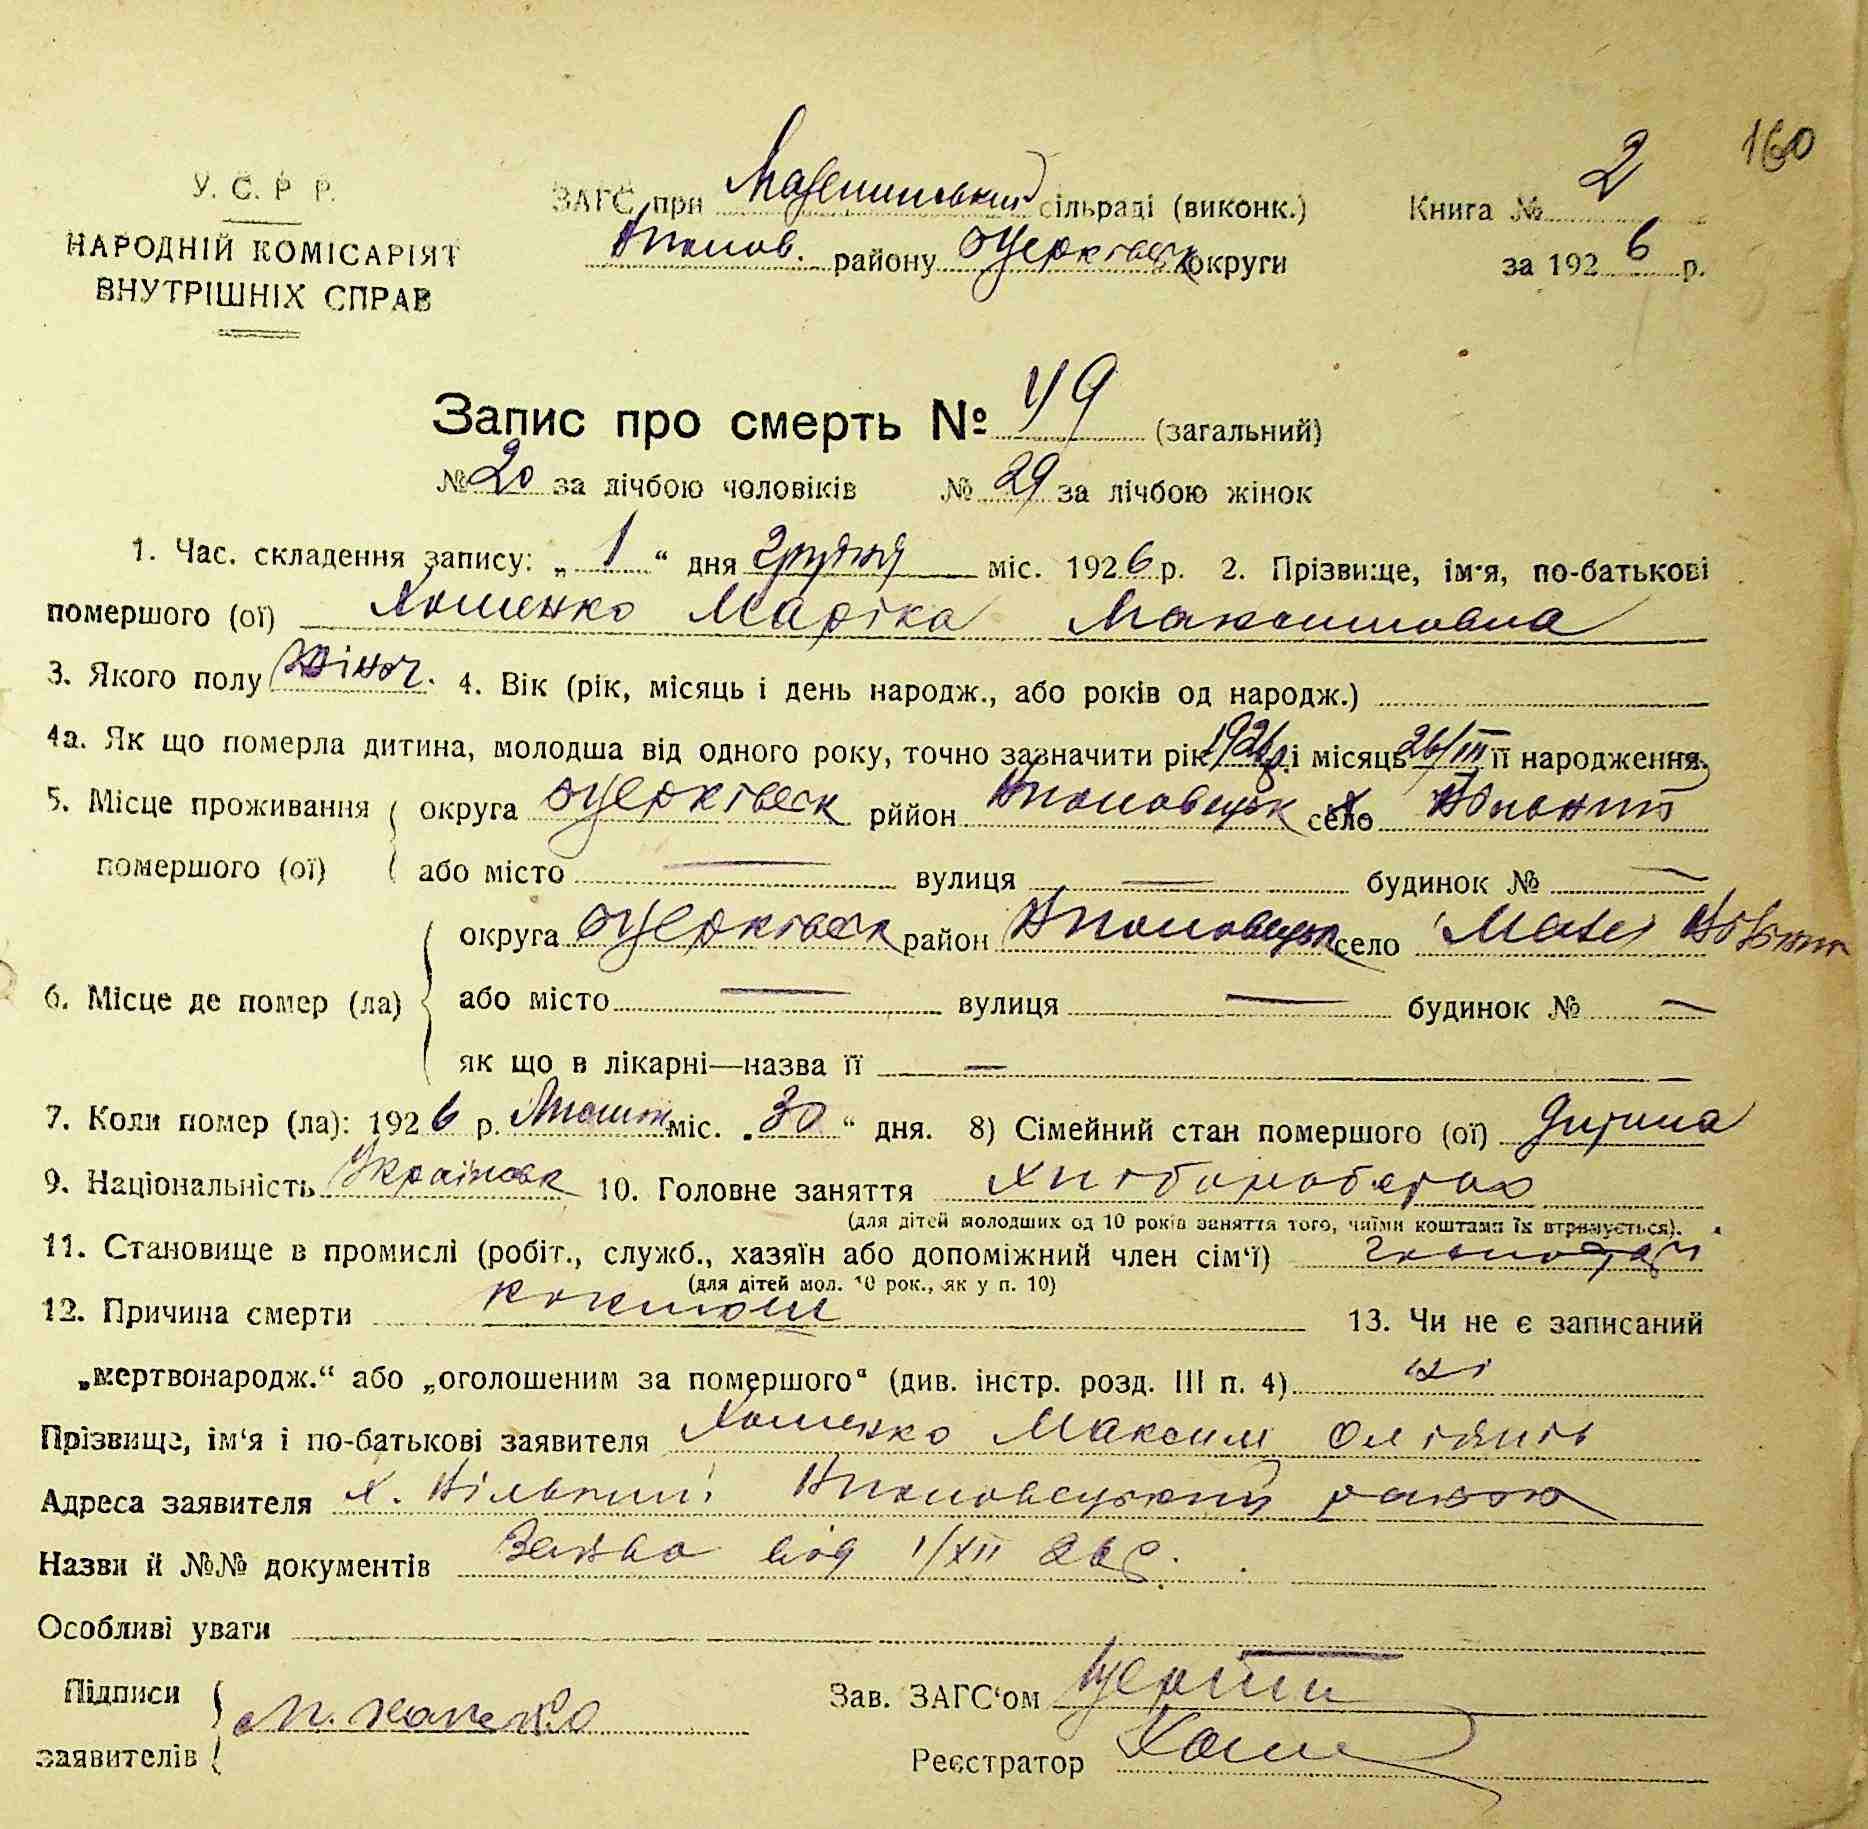 160
У. С. Р. Р.
НАРОДНІЙ КОМІСАРІЯТ
ВНУТРІШНІХ СПРАВ
ЗАГС при сільраді (виконк.)
району округи
Книга № 2
за 1926 р.
Запис про смерть № 49 (загальний)
№ 20 за лічбою чоловіків № 29 за лічбою жінок
1. Час. складення запису: „ 1 “ дня грудня міс. 1926 р. 2. Прізвище, ім'я, по-батькові
помершого (ої) Хоменко Маріка Максимовна
3. Якого полу жіноч. 4. Вік (рік, місяць і день народж., або років од народж.)
4а. Як що померла дитина, молодша від одного року, точно зазначити рік 1926 р. і місяць 26/III її народження.
5. Місце проживання округа район село х. Вільний
помершого (ої) або місто — вулиця — будинок № —
округа район село
6. Місце де помер (ла) або місто — вулиця — будинок № —
як що в лікарні—назва її —
7. Коли помер (ла): 1926 р. міс. „ 30 “ дня. 8) Сімейний стан помершого (ої) дитина
9. Національність Українськ 10. Головне заняття хліборобство
(для дітей молодших од 10 років заняття того, чиїми коштами їх втримується).
11. Становище в промислі (робіт., служб., хазяїн або допоміжний член сім'ї)
(для дітей мол. 10 рок., як у п. 10)
12. Причина смерти коклюш 13. Чи не є записаний
„мертвонародж.“ або „оголошеним за помершого“ (див. інстр. розд. III п. 4) ні
Прізвище, ім'я і по-батькові заявителя Хоменко Максим
Адреса заявителя х. Вільний району
Назви й №№ документів Заява від 1/XII 26 р.
Особливі уваги
Підписи
заявителів М. Хоменко
Зав. ЗАГС'ом
Реєстратор